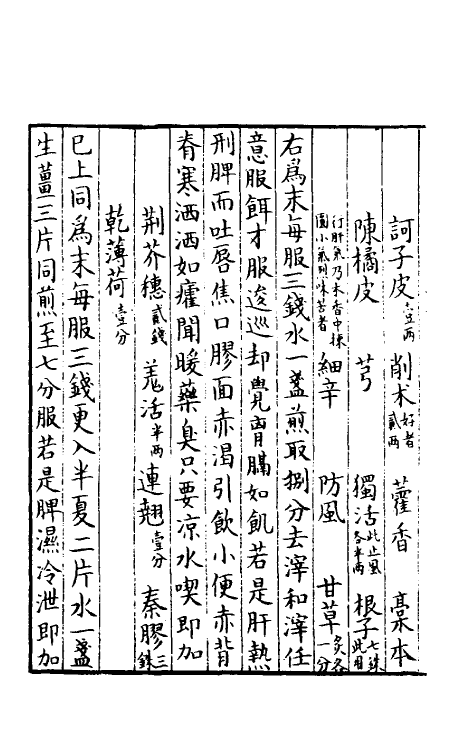 訶子皮壹兩 削术好者貳兩 藿香 藁本
陳橘皮 芎 獨活此止風各半兩 根子七銖此用
行肝氣乃木香中揀圓小氣烈味苦者 細辛 防風 甘草炙各一分
右爲末每服三錢水一盞煎取捌分去滓和滓任
意服餌才服逡巡却覺胃膈如飢若是肝熱
刑脾而吐唇焦口膠面赤渴引飲小便赤背
脊寒洒洒如瘧聞暖藥臭只要凉水喫即加
荆芥穗貳錢 羗活半兩 連翹壹分 秦膠三銖
乾薄荷壹分
已上同爲末每服三錢更入半夏二片水一盞
生薑三片同煎至七分服若是脾濕冷泄即加